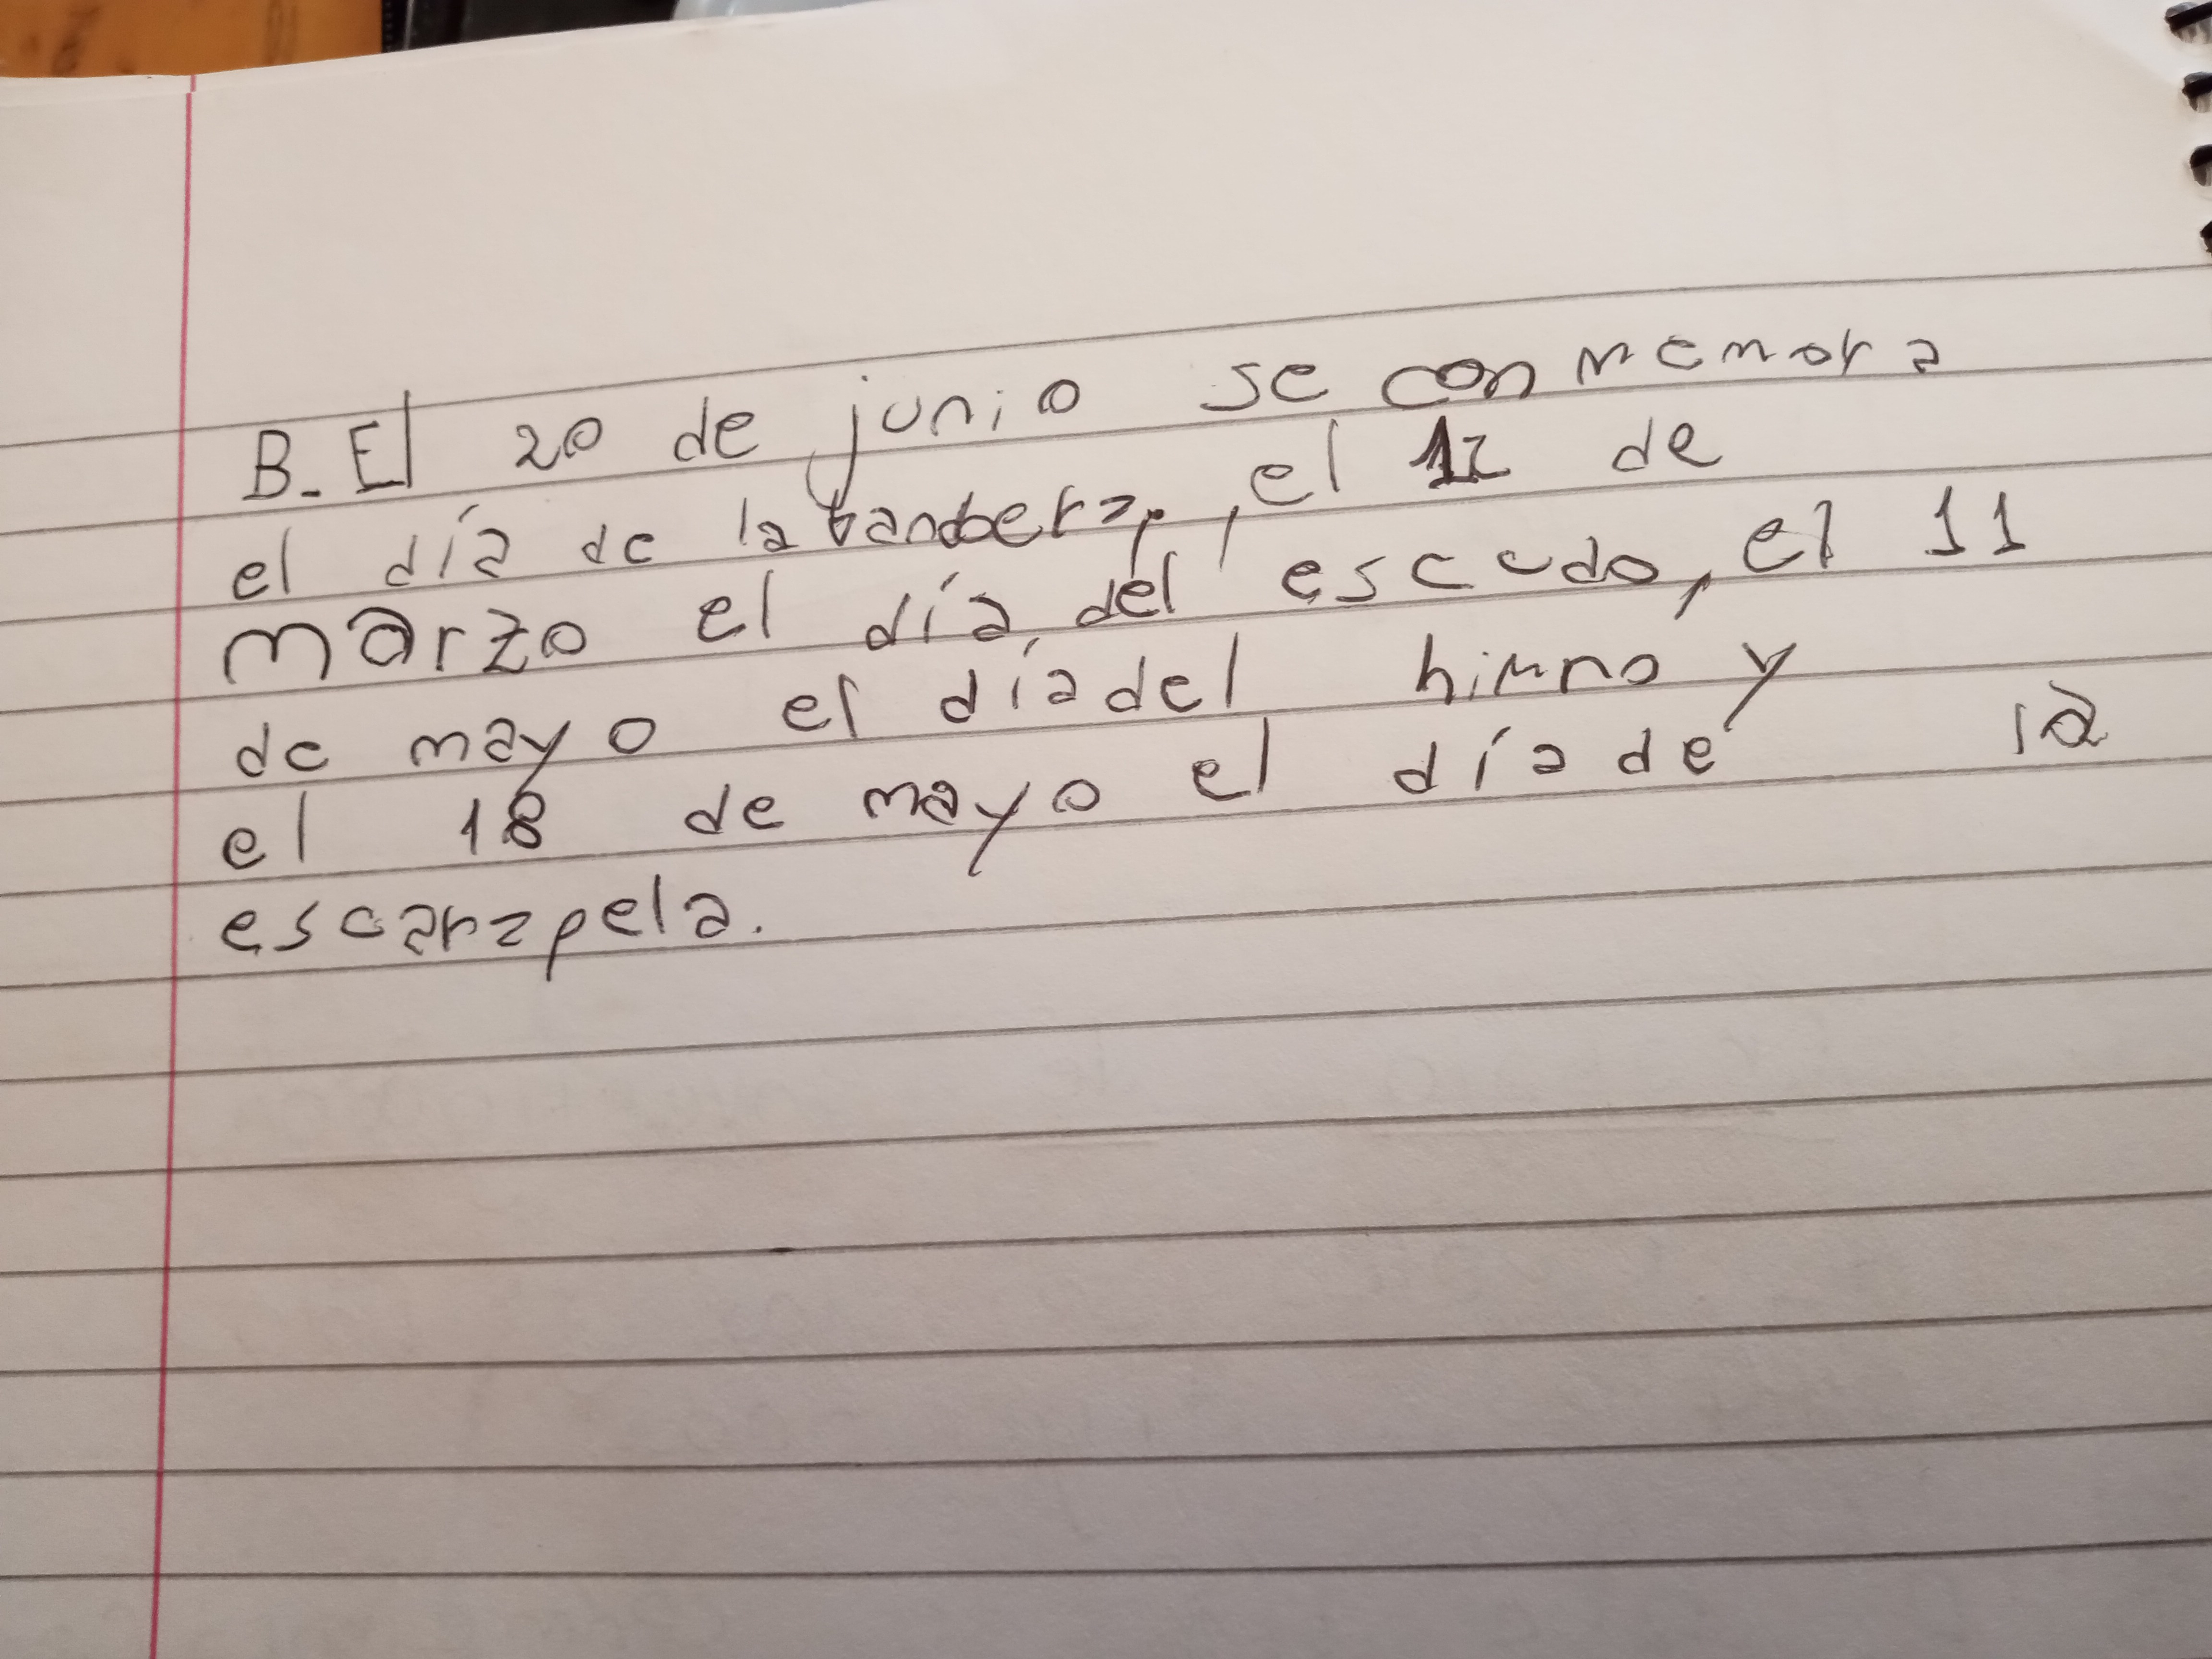 B. El 20 de junio se conmemora
el día de la bandera, el 12 de
marzo el día del escudo, el 11
de mayo el día del himno y
el 18 de mayo el día de la
escarapela.